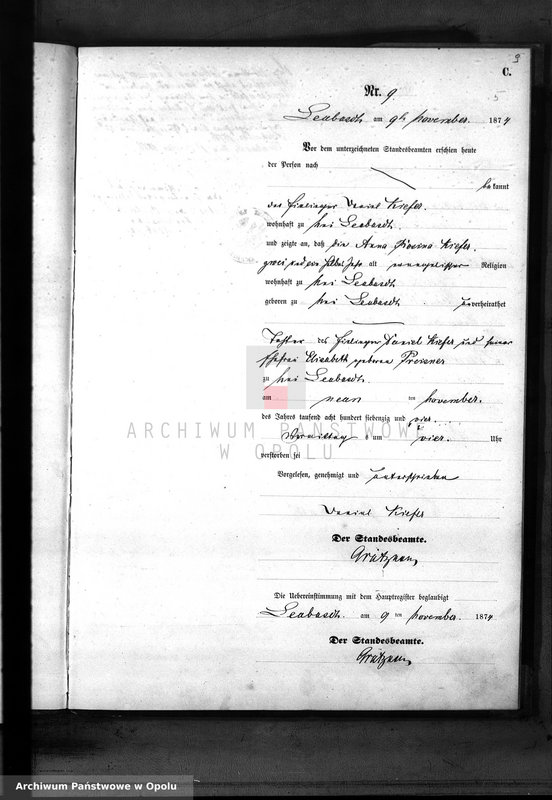 9
C.
5
Nr. 9
Leobschütz am 9ten November 1874
Vor dem unterzeichneten Standesbeamten erschien heute
der Person nach
bekannt
der Einlieger Daniel Kiefer
wohnhaft zu frei
und zeigte an, daß die Anna Kiefer
zwei und ein halbes Jahr alt evangelischer Religion
wohnhaft zu frei
geboren zu frei unverheirathet
Tochter des Einlieger Daniel Kiefer und seiner
Ehefrau Elisabeth geborene
zu frei
am neun ten November
des Jahres tausend acht hundert siebenzig und vier
Vormittag s um vier Uhr
verstorben sei
Vorgelesen, genehmigt und unterschrieben
Daniel Kiefer
Der Standesbeamte.
Die Uebereinstimmung mit dem Hauptregister beglaubigt
am 9 ten November 1874
Der Standesbeamte.
ARCHIWUM PAŃSTWOWE
W OPOLU
Archiwum Państwowe w Opolu